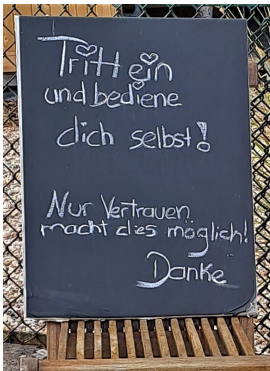 Tritt ein
und bediene
dich selbst!
Nur Vertrauen
macht dies möglich!
Danke